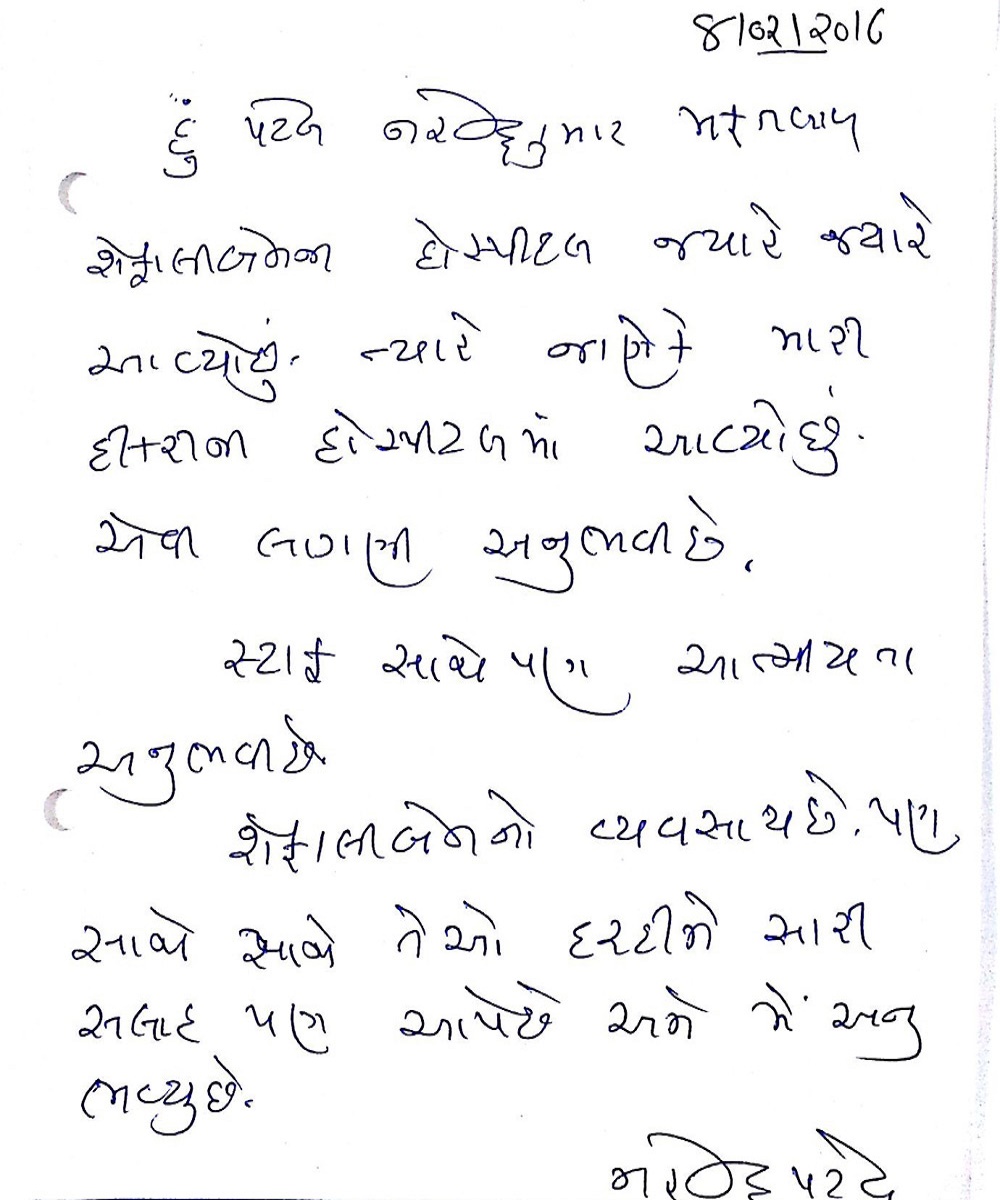 8/02/2016
હું પટેલ નરેન્દ્રકુમાર મફતલાલ
શેફાલીબેનના હોસ્પીટલ જ્યારે જ્યારે
આવ્યોછું. ત્યારે જાણેકે મારી
દીકરીના હોસ્પીટલમાં આવ્યોછું.
એવી લાગણી અનુભવીછે.
સ્ટાફ સાથેપણ આત્મીયતા
અનુભવીછે
શેફાલીબેનનો વ્યવસાયછે. પણ
સાથે સાથે તેઓ દરદીને સારી
સલાહ પણ આપેછે અને મેં અનુ
ભવ્યુછે.
નરેન્દ્ર પટેલ